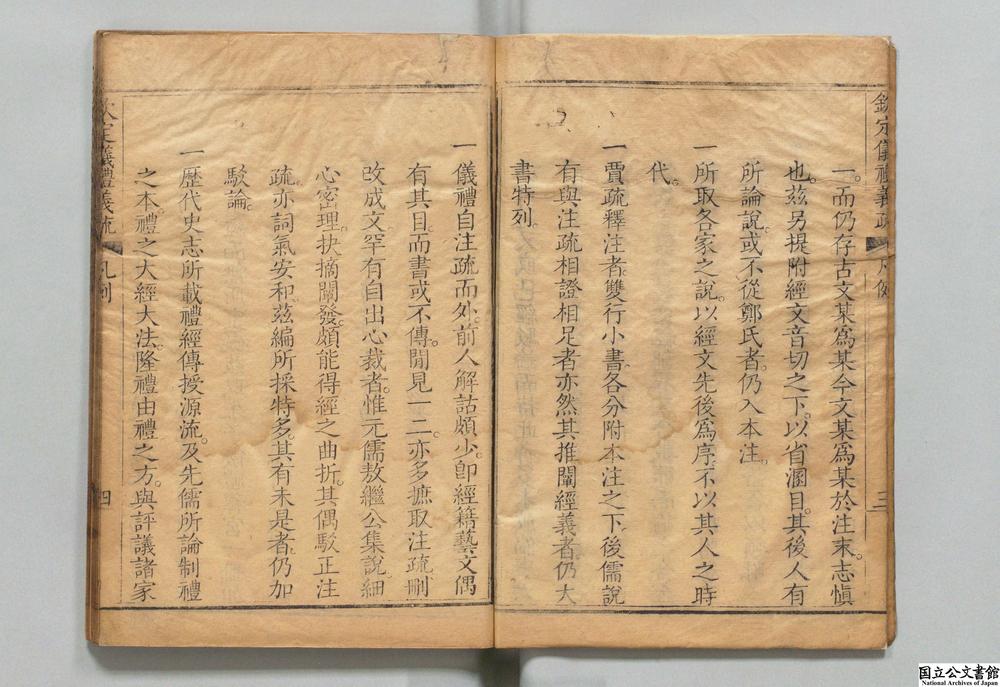 欽定儀禮義疏 凡例 三
一而仍存古文某爲某今文某爲某於注末志愼
也茲另提附經文音切之下以省溷目其後人有
所論說或不從鄭氏者仍入本注
一所取各家之說以經文先後爲序不以其人之時
代
一賈疏釋注者雙行小書各分附本注之下後儒說
有與注疏相證相足者亦然其推闡經義者仍大
書特列
一儀禮自注疏而外前人解詁頗少卽經籍藝文偶
有其目而書或不傳閒見一二亦多摭取注疏刪
改成文罕有自出心裁者惟元儒敖繼公集說細
心密理抉摘闡發頗能得經之曲折其偶駁正注
疏亦詞氣安和茲編所採特多其有未是者仍加
駁論
一歷代史志所載禮經傳授源流及先儒所論制禮
之本禮之大經大法隆禮由禮之方與評議諸家
欽定儀禮義疏 凡例 四
国立公文書館
National Archives of Japan